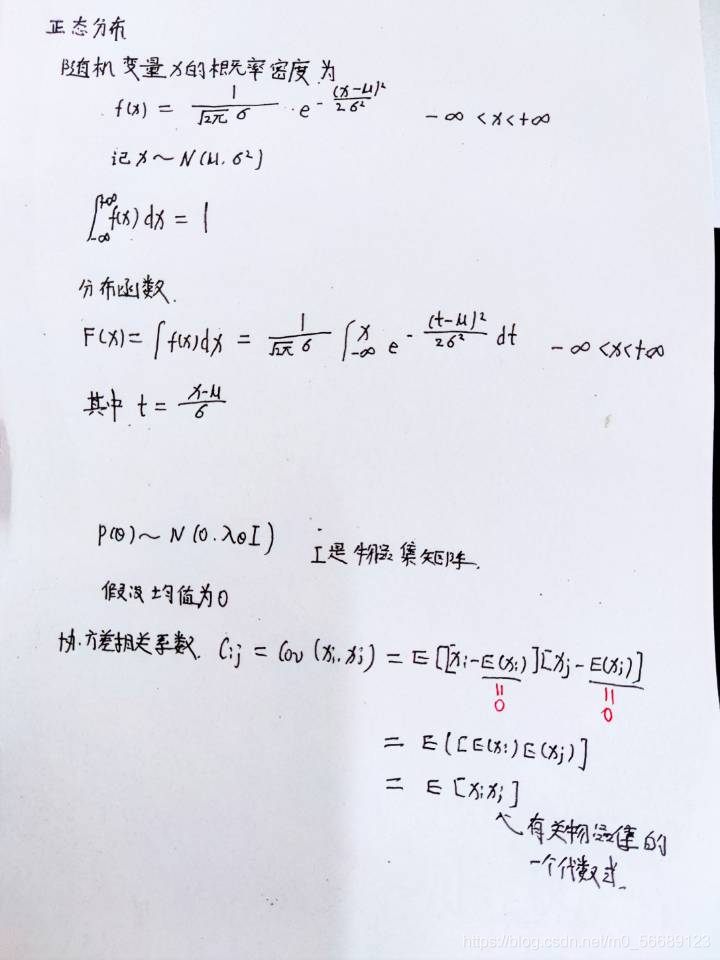 正态分布
随机变量x的概率密度为
f(x) = 1/(√2π σ) · e^(-(x-μ)²/2σ²)  -∞ < x < +∞
记 x ~ N(μ, σ²)
∫_{-∞}^{+∞} f(x) dx = 1
分布函数.
F(x) = ∫ f(x) dx = 1/(√2π σ) ∫_{-∞}^{x} e^(-(t-μ)²/2σ²) dt  -∞ < x < +∞
其中 t = (x-μ)/σ
P(θ) ~ N(0, λθI)  I是物品集矩阵.
假设均值为0
协方差相关系数. Cij = Cov(xi, xj) = E[[xi - E(xi)][xj - E(xj)]
= 0 = 0
= E{[E(xi)E(xj)]
= E[xixj]
有关物品集的
一个代数式.
https://blog.csdn.net/m0_56689123